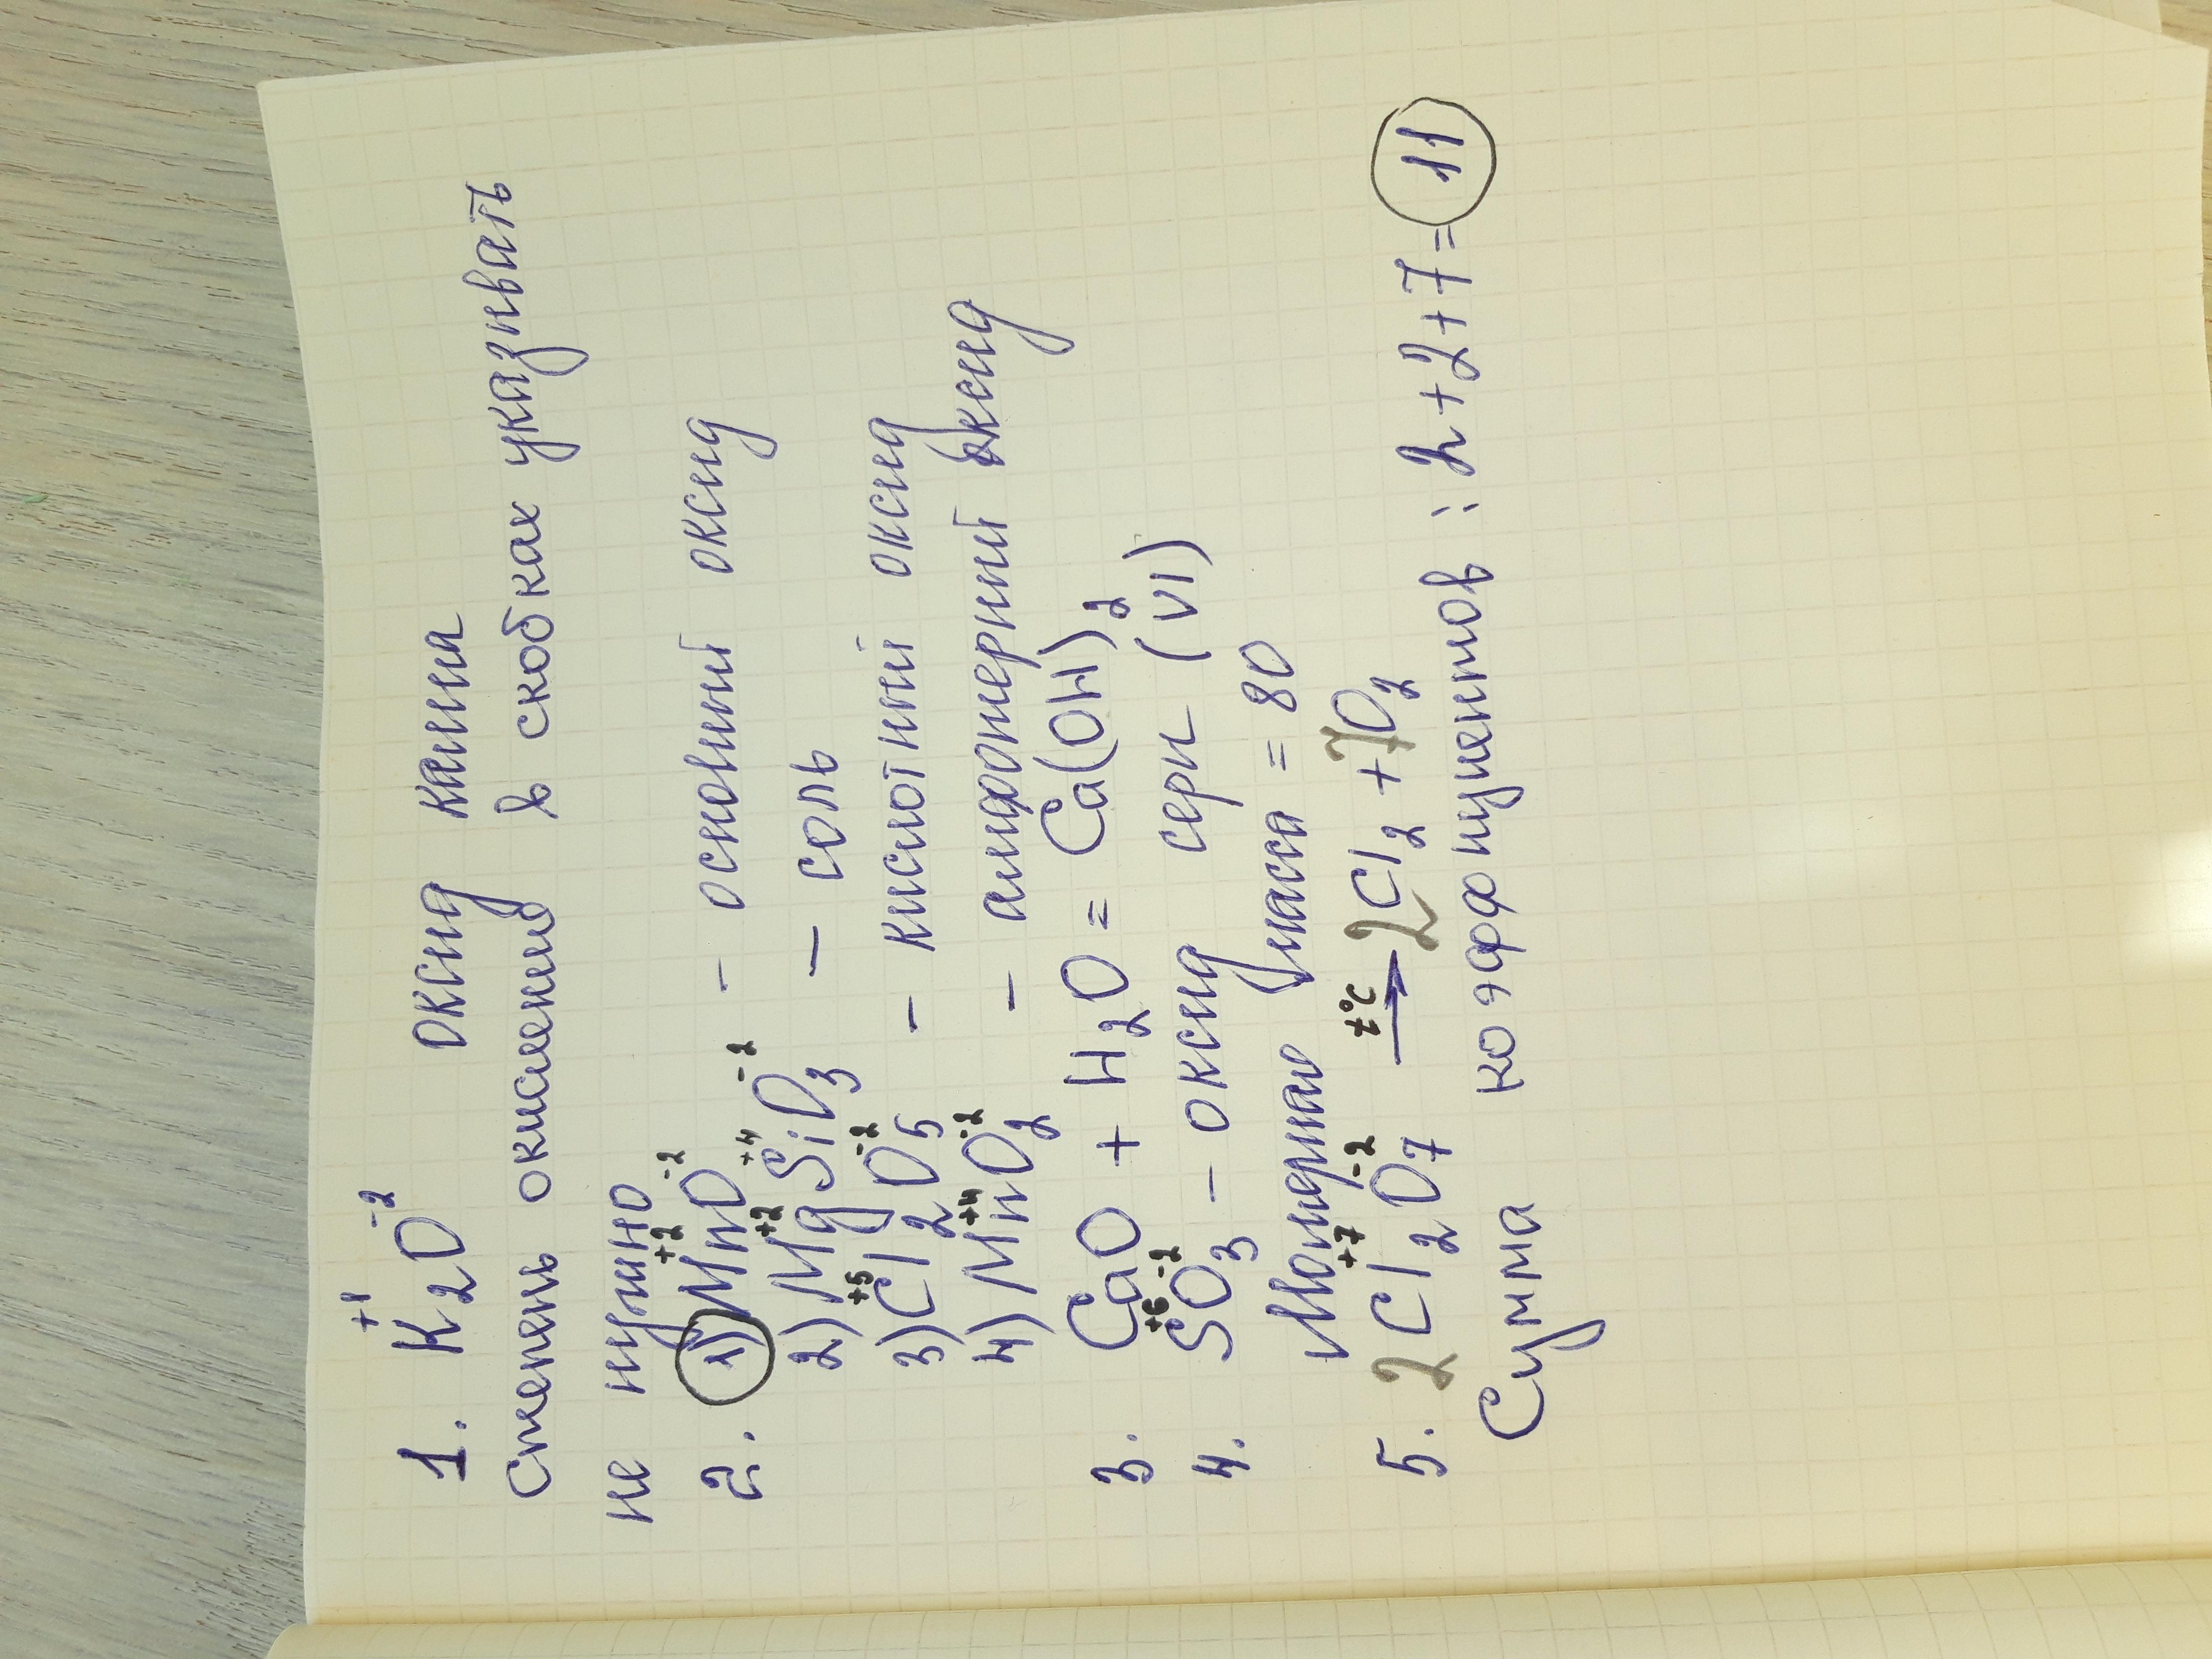 1. K₂⁺¹O⁻² оксид калия
Степень окисления в скобках указивать
не нужно
2. 1) Mn⁺²O⁻² - основний оксид
2) Mg⁺²Si⁺⁴O₃⁻² - соль
3) Cl₂⁺⁵O₅⁻² - кислотний оксид
4) Mn⁺⁴O₂⁻² - амфотерний оксид
3. CaO + H₂O = Ca(OH)₂
4. S⁺⁶O₃⁻² - оксид сери (VI)
Молярная масса = 80
5. 2Cl₂⁺⁷O₇⁻² t°C → 2Cl₂ + 7O₂
Сумма коэффициентов : 2+2+7= 11